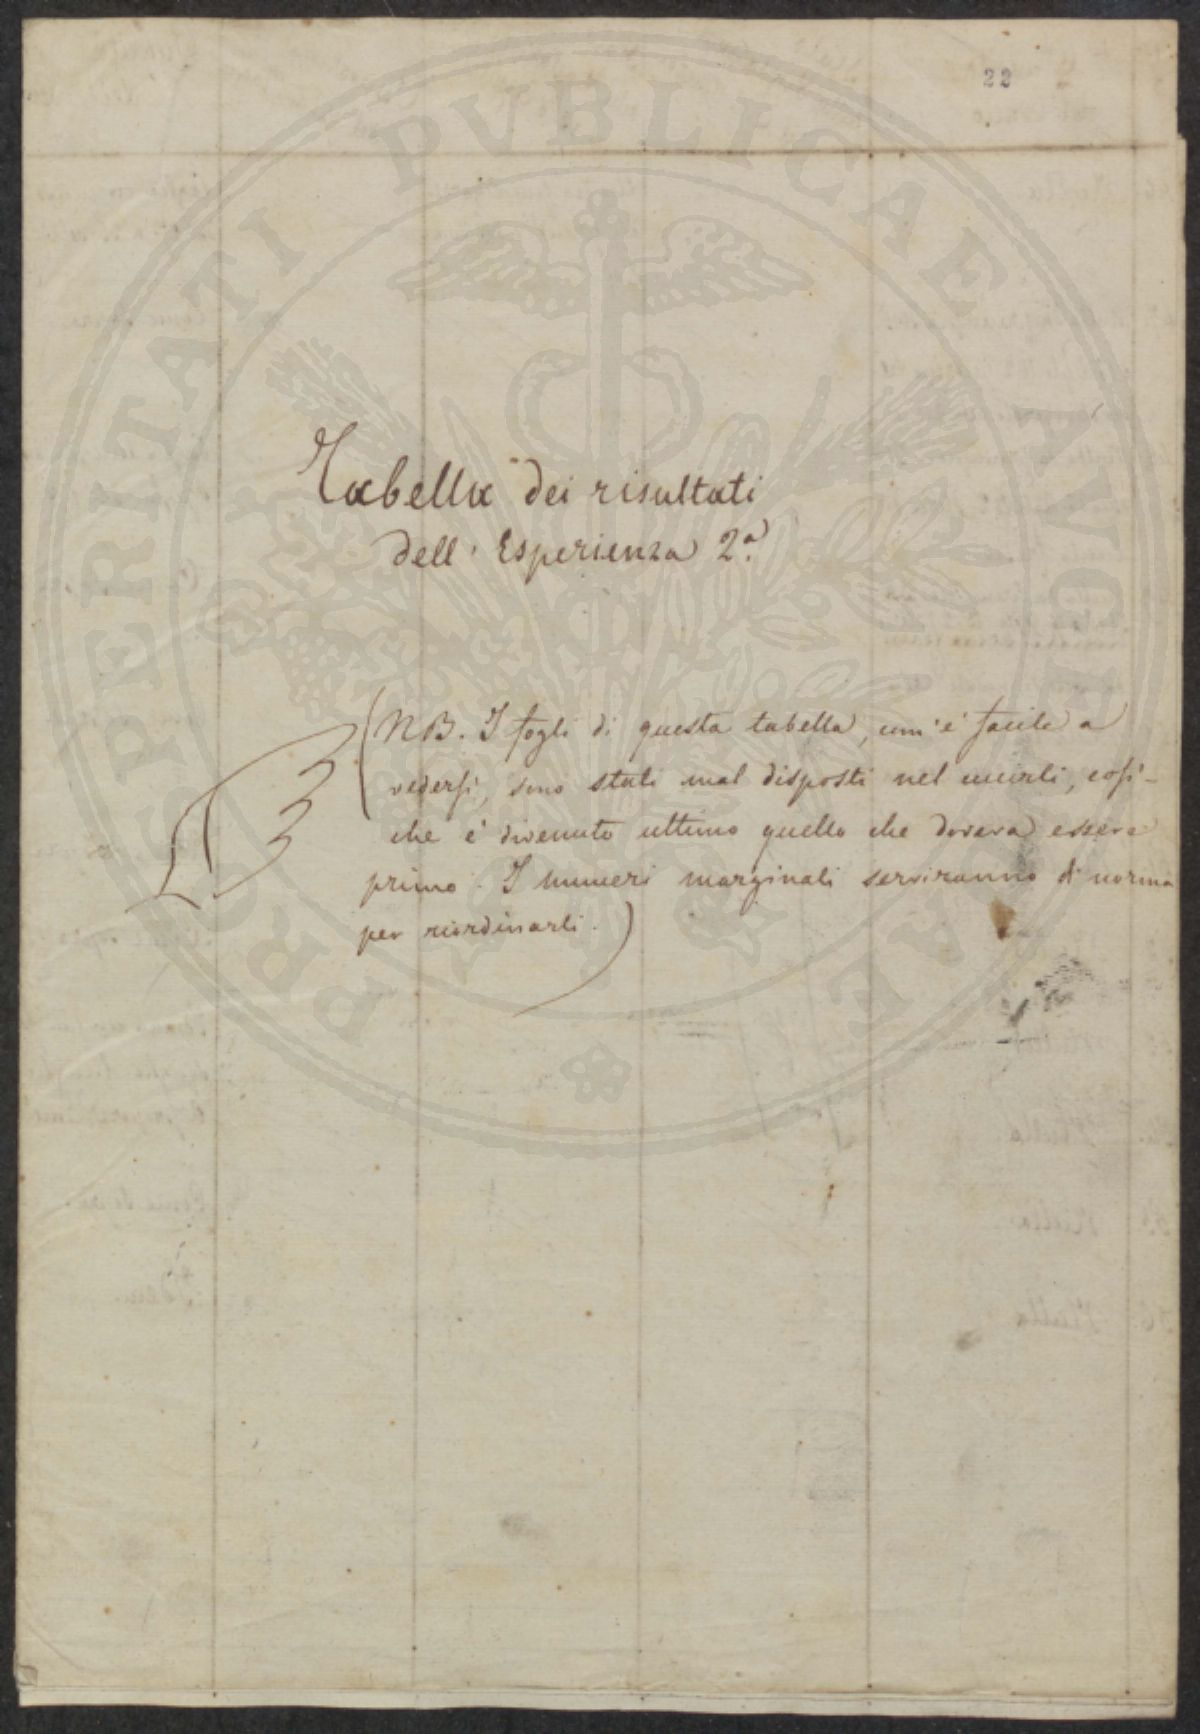 22
Tabella dei risultati
dell' Esperienza 2.ª
(NB. I fogli di questa tabella, com'è facile a
vedersi, sono stati mal disposti nel cucirli, cosi-
che è divenuto ultimo quello che doveva essere
primo. I numeri marginali serviranno di norma
per riordinarli.)
PROSPERITATI PVBLICAE AVGENDAE